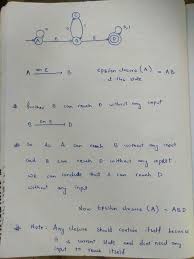 A B D
A on ε B epsilon closure (A) = AB
at this state
further B can reach D without any input
B on ε D
So as A can reach B without any input
and B can reach D without any input
we can conclude that A can reach D
without any input
Now Epsilon closure (A) = ABD
Note: Any closure should contain itself because
it is current state and does need any
input to reach itself